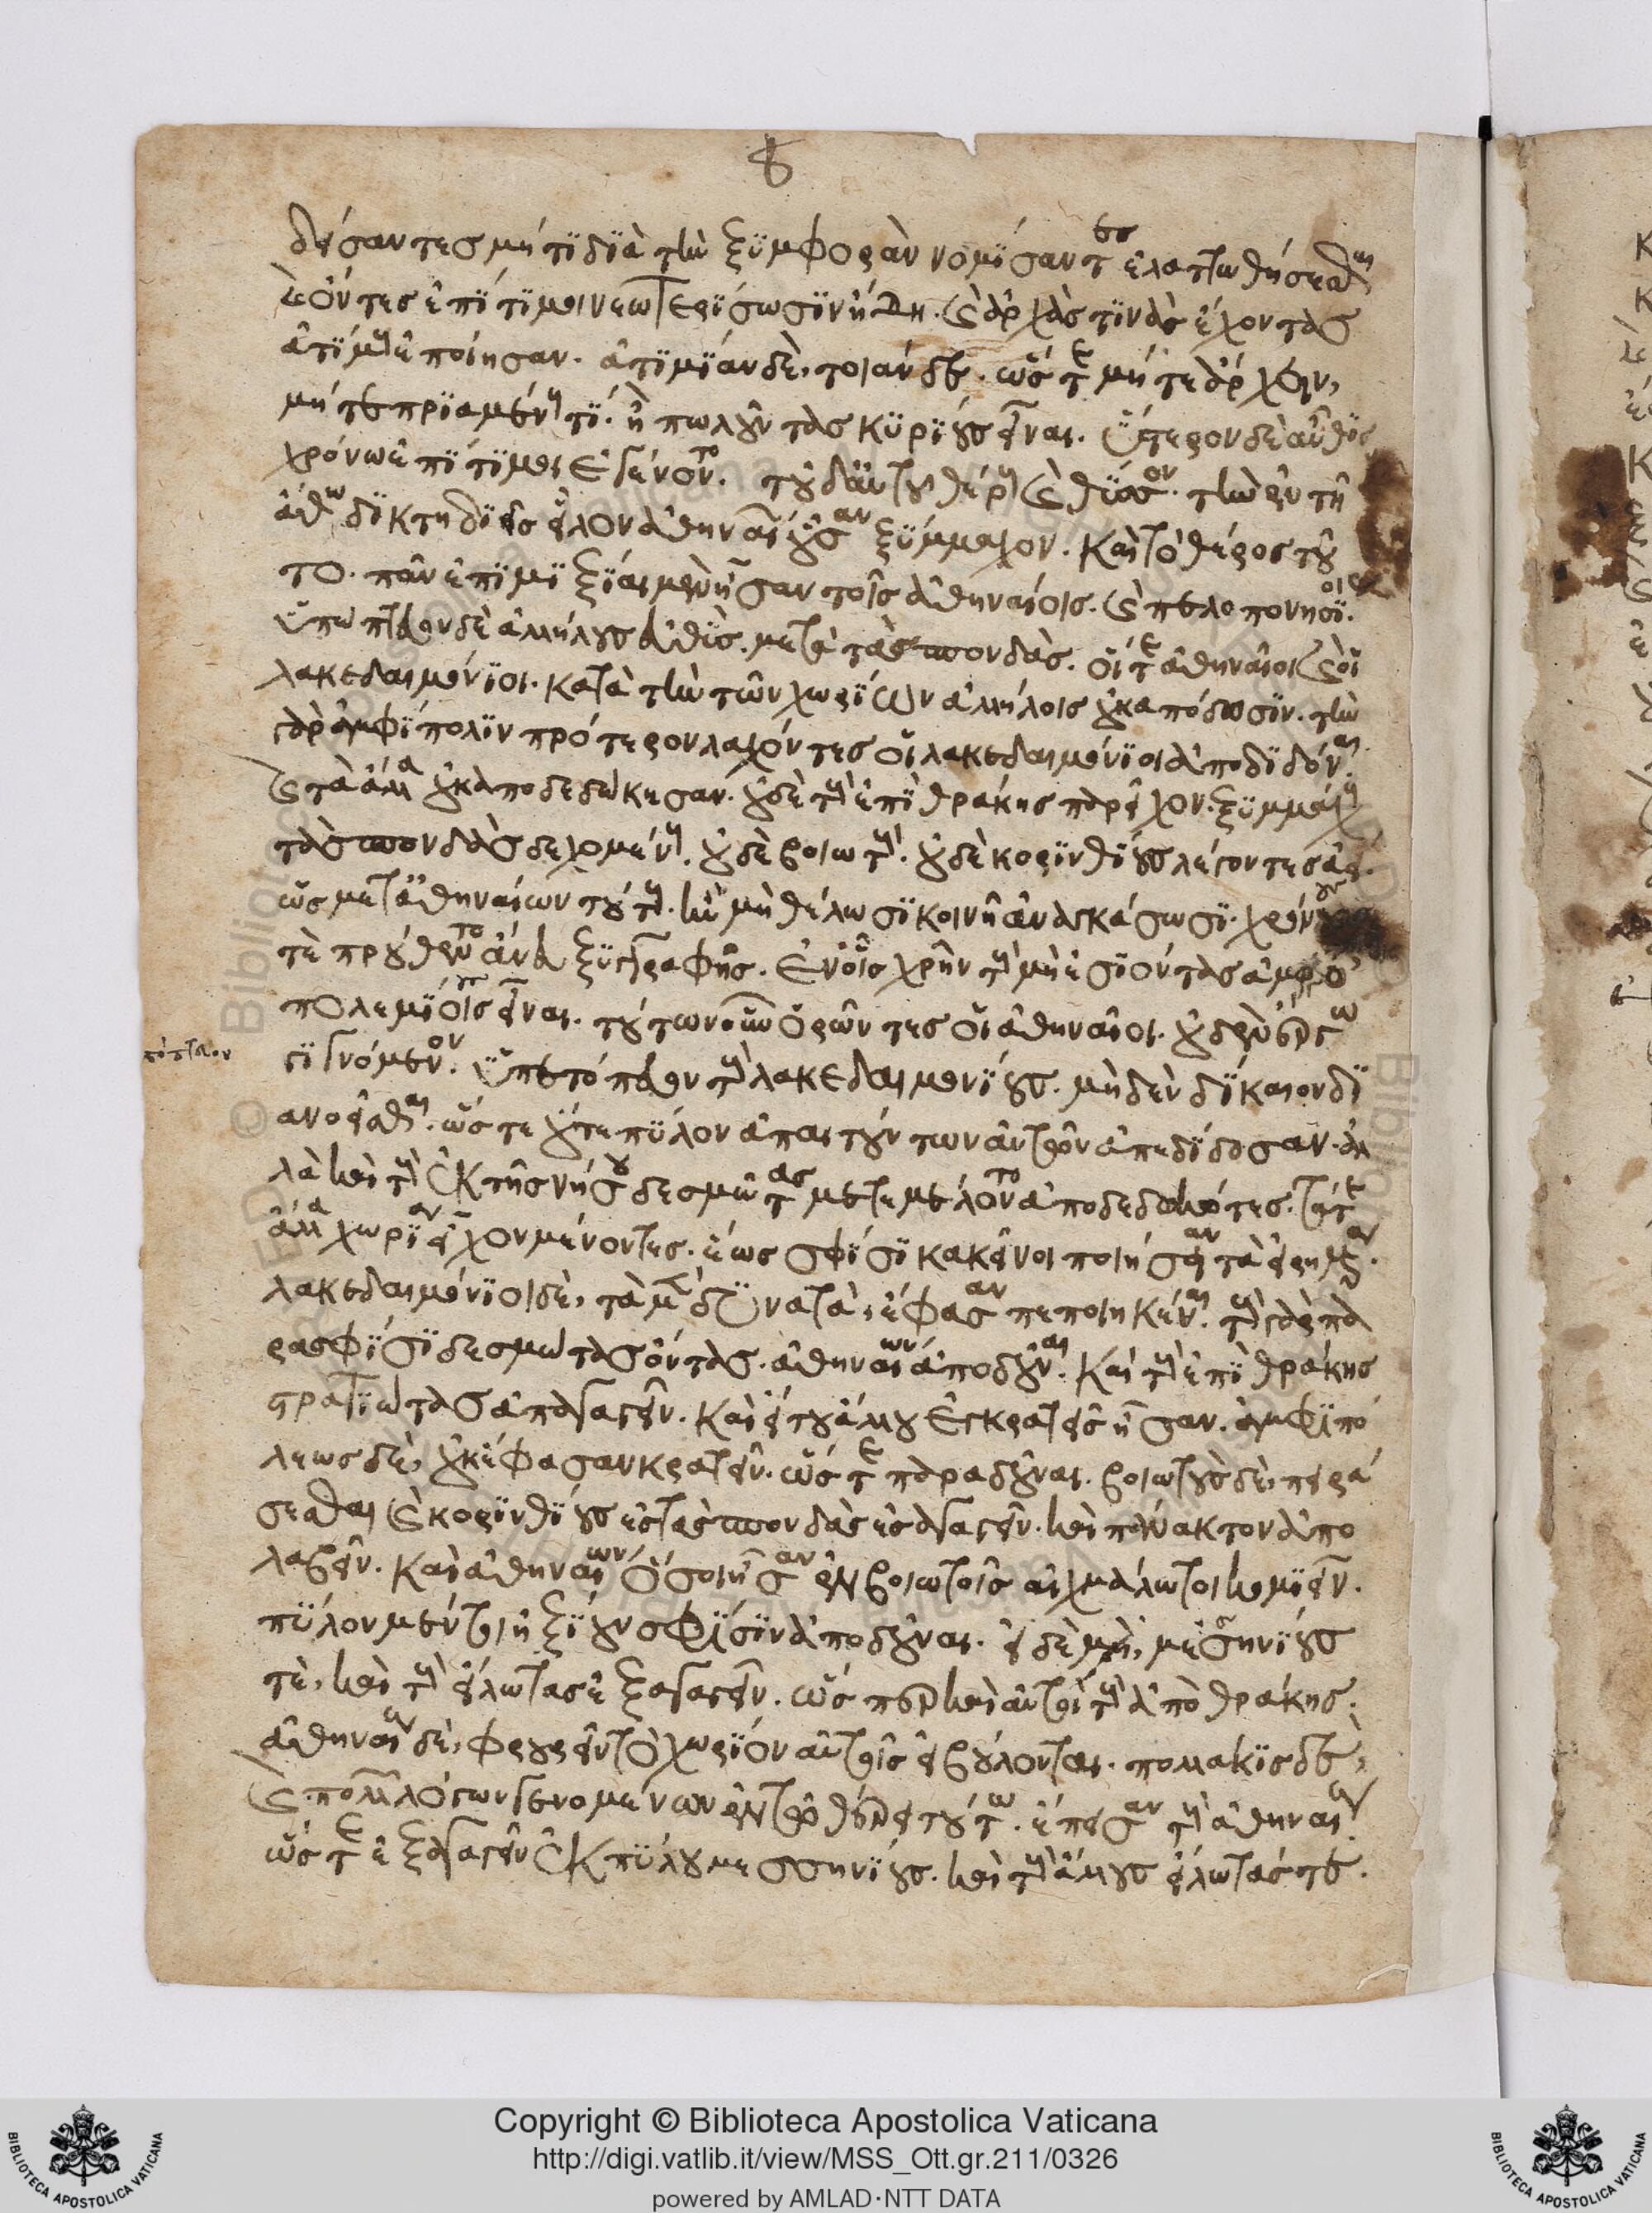 δείσαντες μή τι διὰ τὴν ξυμφορὰν νομίσαντες ἐλαττωθήσεσθαι
καὶ ὄντες ἐπίτιμοι νεωτερίσωσιν ἤδη καὶ ἀρχάς τινας ἔχοντας
ἀτίμους ἐποίησαν. ἀτιμίαν δὲ, τοιάνδε. ὥστε μήτε ἄρχειν,
μήτε πριαμένους τι. ἢ πωλοῦντας κυρίους εἶναι. ὕστερον δὲ αὖθις
χρόνω ἐπίτιμοι ἐγένοντο. τοῦ δ' αὐτοῦ θέρους καὶ θύσσον. τὴν ἐν τῆ
ἄθω δικτηδιεῖς εἷλον ἀθηναίους οὖσαν ξύμμαχον. καὶ τὸ θέρος τοῦ
το. πᾶν ἐπιμιξίαι μὲν ἦσαν τοῖς ἀθηναίοις. καὶ πελοποννησίοις
ὑπώπτευον δὲ ἀλλήλους εὐθὺς. μετὰ τὰς σπονδὰς. οἵ τε ἀθηναῖοι καὶ οἱ
λακεδαιμόνιοι. κατὰ τὴν τῶν χωρίων ἀλλήλοις οὐκ ἀπόδωσιν. τὴν
γὰρ ἀμφίπολιν πρότερον λαχόντες οἱ λακεδαιμόνιοι ἀποδιδόναι.
καὶ τὰ ἄλλα οὐκ ἀποδεδώκησαν. οὐδὲ τοὺς ἐπὶ θράκης παρεῖχον. ξυμμάχους
τὰς σπονδὰς δεχομένους. οὐδὲ βοιωτοὺς. οὐδὲ κορινθίους λέγοντες ἀεὶ.
ὡς μετ' ἀθηναίων τούτους. ἢν μὴ θέλωσι κοινῆ ἀναγκάσωσι. χρόνους
τὲ προύθεντο ἄνευ ξυγγραφῆς. ἐν οἷς χρῆν τοὺς μὴ ἐσιόντας ἀμφο
πολεμίους εἶναι. τούτων οὖν ὁρῶντες οἱ ἀθηναῖοι. οὐδὲν ἔργω
γιγνόμενον. ὑπετόπευον τοὺς λακεδαιμονίους. μηδὲν δίκαιον δι
ανοεῖσθαι. ὥστε οὔτε πύλον ἀπαιτούντων αὐτῶν ἀπεδίδοσαν. ἀλ
λὰ καὶ τοὺς ἐκ τῆς νήσου δεσμώτας μετεμέλοντο ἀποδεδωκότες. τά τε
ἄλλα χωρία εἶχον μένοντες. ἕως σφίσι κἀκεῖνοι ποιήσειαν τὰ εἰρημένα.
λακεδαιμόνιοι δὲ, τὰ μὲν δυνατὰ, ἔφασαν πεποιηκέναι. τοὺς γὰρ πα
ρα σφίσι δεσμώτας ὄντας. ἀθηναίων ἀποδοῦναι. καὶ τοὺς ἐπὶ θράκης
στρατιώτας ἀπαγαγεῖν. καὶ εἴ του ἄλλου ἐγκρατεῖς ἦσαν. ἀμφιπό
λεως δὲ, οὐκ ἔφασαν κρατεῖν. ὥστε παραδοῦναι. βοιωτοὺς δὲ, πειρά
σεσθαι καὶ κορινθίους ἐς τὰς σπονδὰς ἐσαγαγεῖν. καὶ πάνακτον ἀπο
λαβεῖν. καὶ ἀθηναίων ὅσοι ἦσαν ἐν βοιωτοῖς αἰχμάλωτοι κομιεῖν.
πύλον μέντοι ἠξίουν σφίσιν ἀποδοῦναι. εἰ δὲ μὴ, μεσσηνίους
τὲ, καὶ τοὺς εἵλωτας ἐξαγαγεῖν. ὥσπερ καὶ αὐτοὶ τοὺς ἀπὸ θράκης.
ἀθηναίους δὲ, φρουρεῖν τὸ χωρίον αὐτοῖς εἰ βούλονται. πολλάκις δὲ,
καὶ πολλῶν λόγων γενομένων ἐν τῶ θέρει τούτω. ἔπεισαν τοὺς ἀθηναίους
ὥστε ἐξαγαγεῖν ἐκ πύλου μεσσηνίους. καὶ τοὺς ἄλλους εἵλωτάς τε.
Copyright © Biblioteca Apostolica Vaticana
http://digi.vatlib.it/view/MSS_Ott.gr.211/0326
powered by AMLAD·NTT DATA
BIBLIOTECA APOSTOLICA VATICANA
BIBLIOTECA APOSTOLICA VATICANA